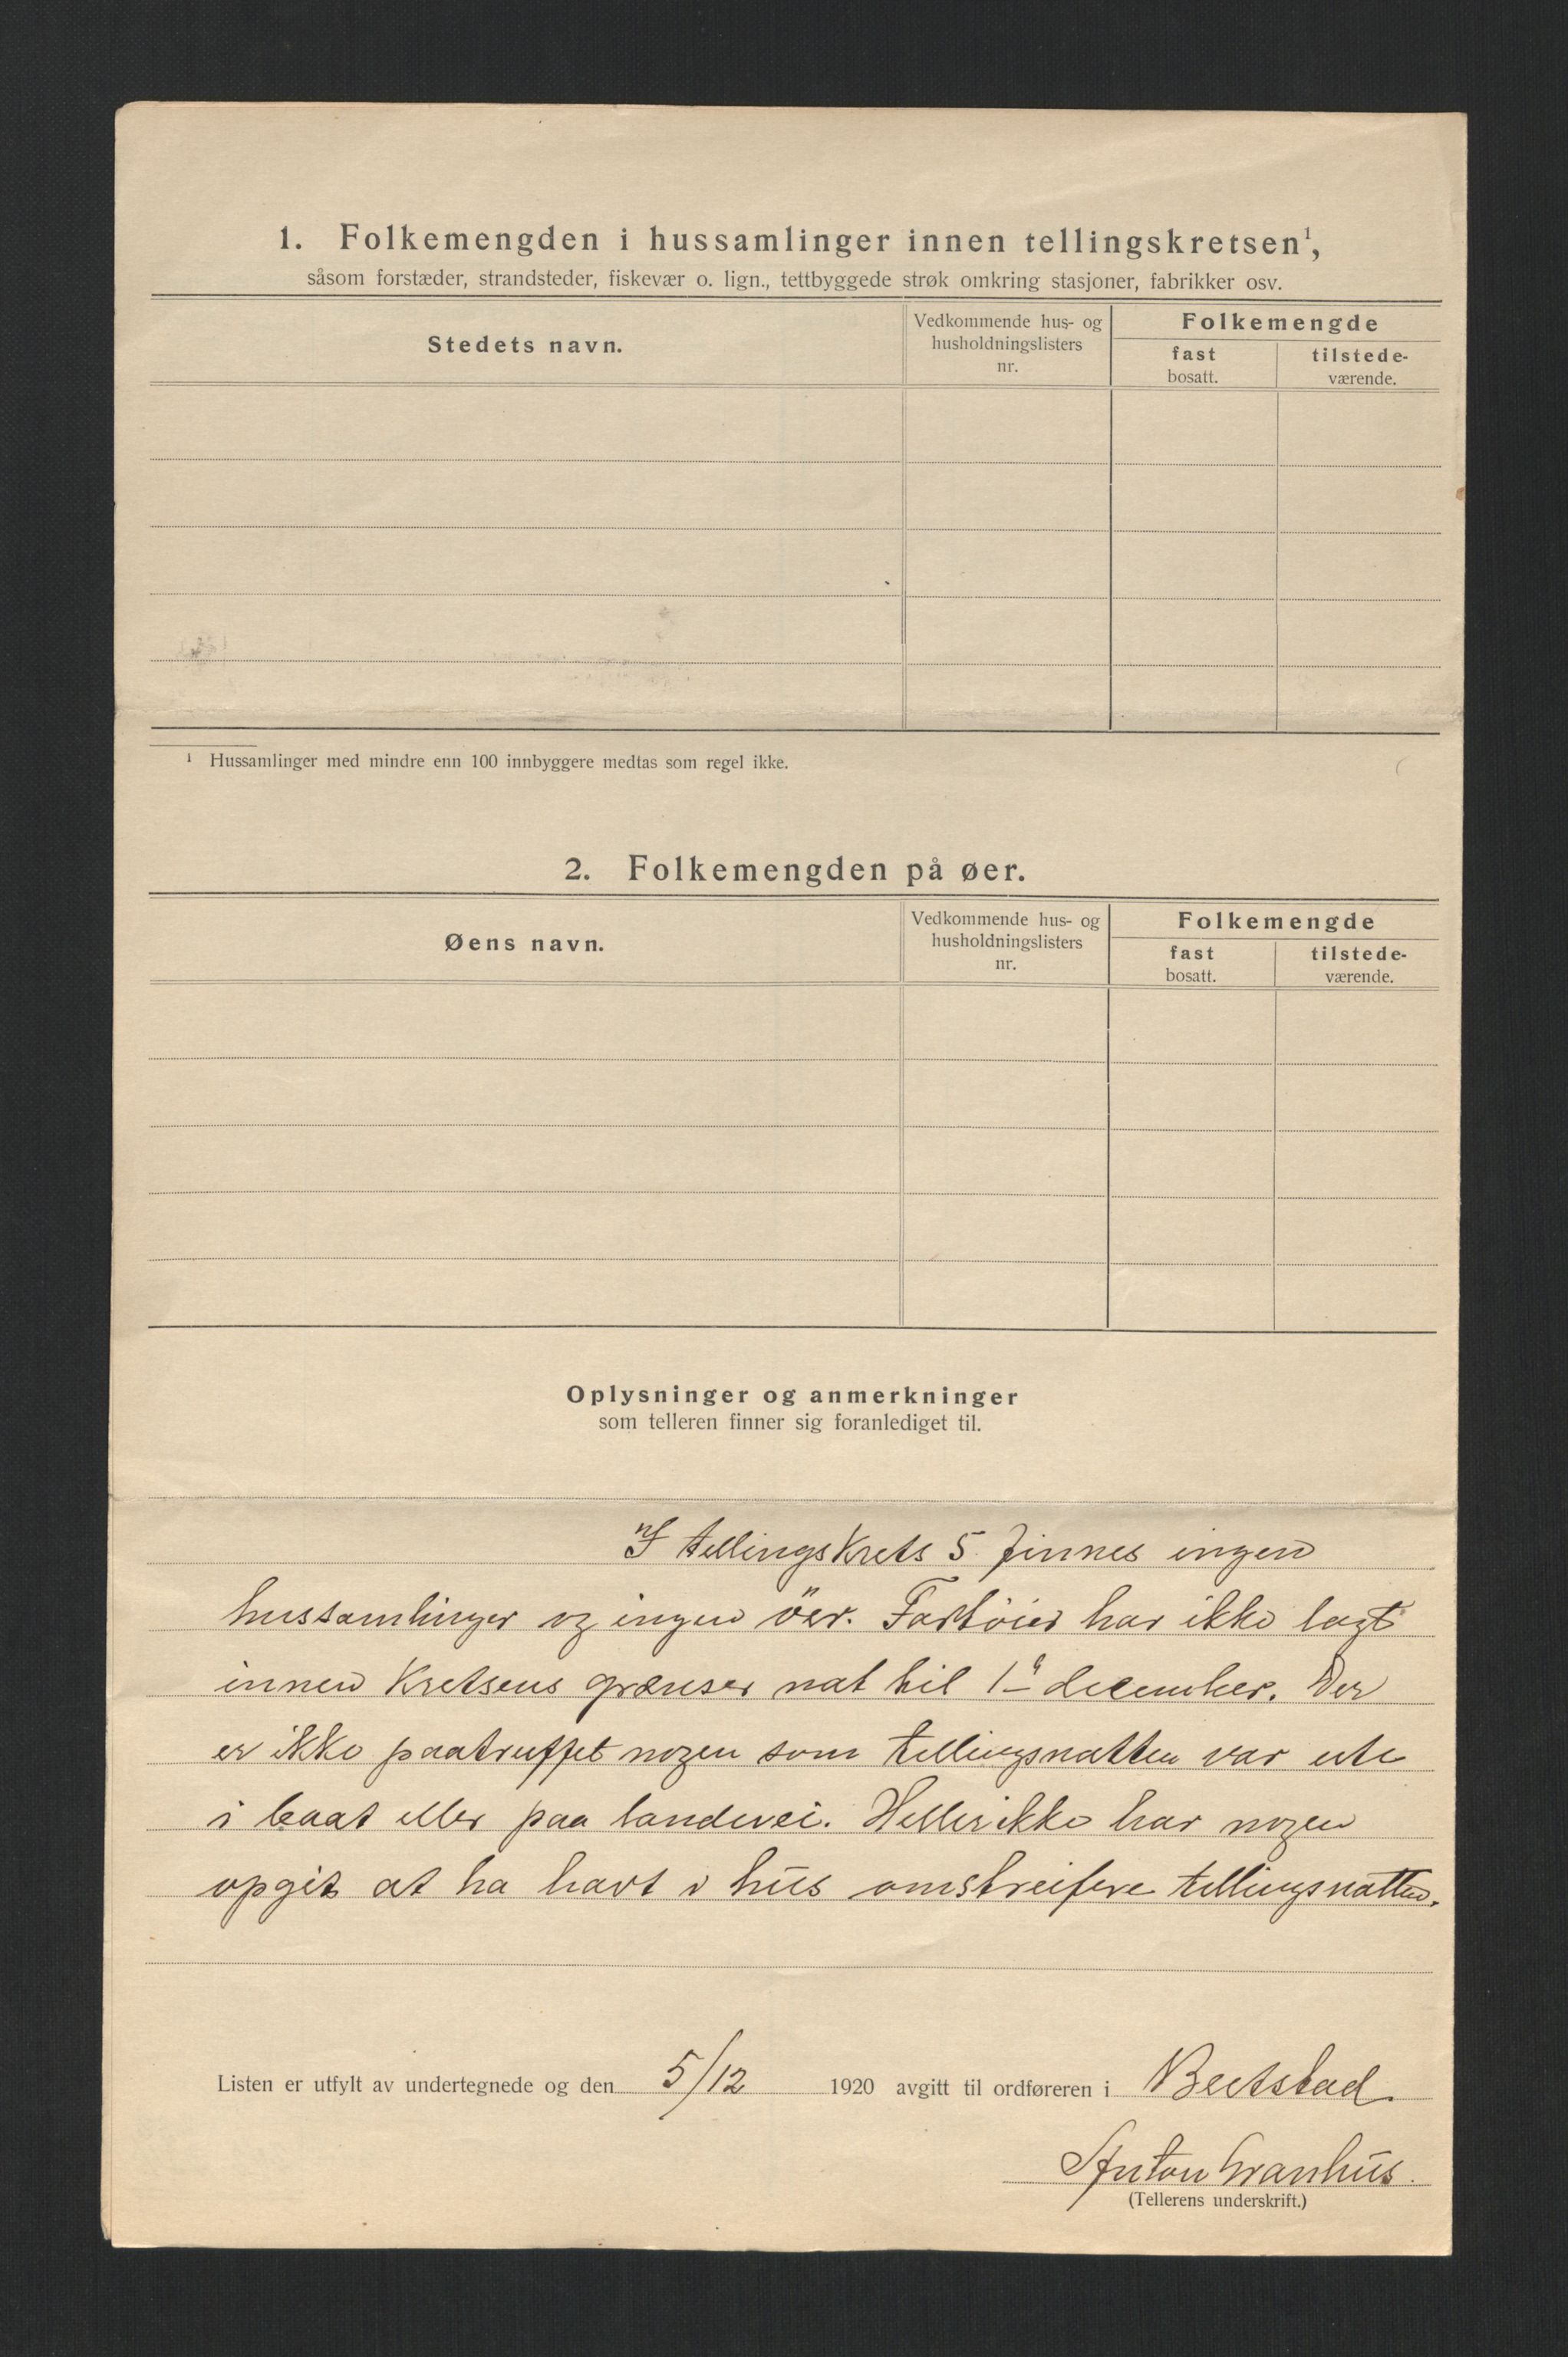 1. Folkemengden i hussamlinger innen tellingskretsen¹,
såsom forstæder, strandsteder, fiskevær o. lign., tettbyggede strøk omkring stasjoner, fabrikker osv.
Stedets navn.
Vedkommende hus- og
husholdningslisters
nr.
Folkemengde
fast
bosatt.
tilstede-
værende.
¹ Hussamlinger med mindre enn 100 innbyggere medtas som regel ikke.
2. Folkemengden på øer.
Øens navn.
Vedkommende hus- og
husholdningslisters
nr.
Folkemengde
fast
bosatt.
tilstede-
værende.
Oplysninger og anmerkninger
som telleren finner sig foranlediget til.
I tellingskrets 5 finnes ingen
hussamlinger og ingen öer. Fartöier har ikke lagt
innen kretsens grænser nat til 1ᵗᵉ december. Der
er ikke paatruffet nogen som tellingsnatten var ute
i baat eller paa landevei. Heller ikke har nogen
opgit at ha havt i hus omstreifere tellingsnatten.
Listen er utfylt av undertegnede og den 5/12 1920 avgitt til ordføreren i Beitstad
Anton Granhus.
(Tellerens underskrift.)